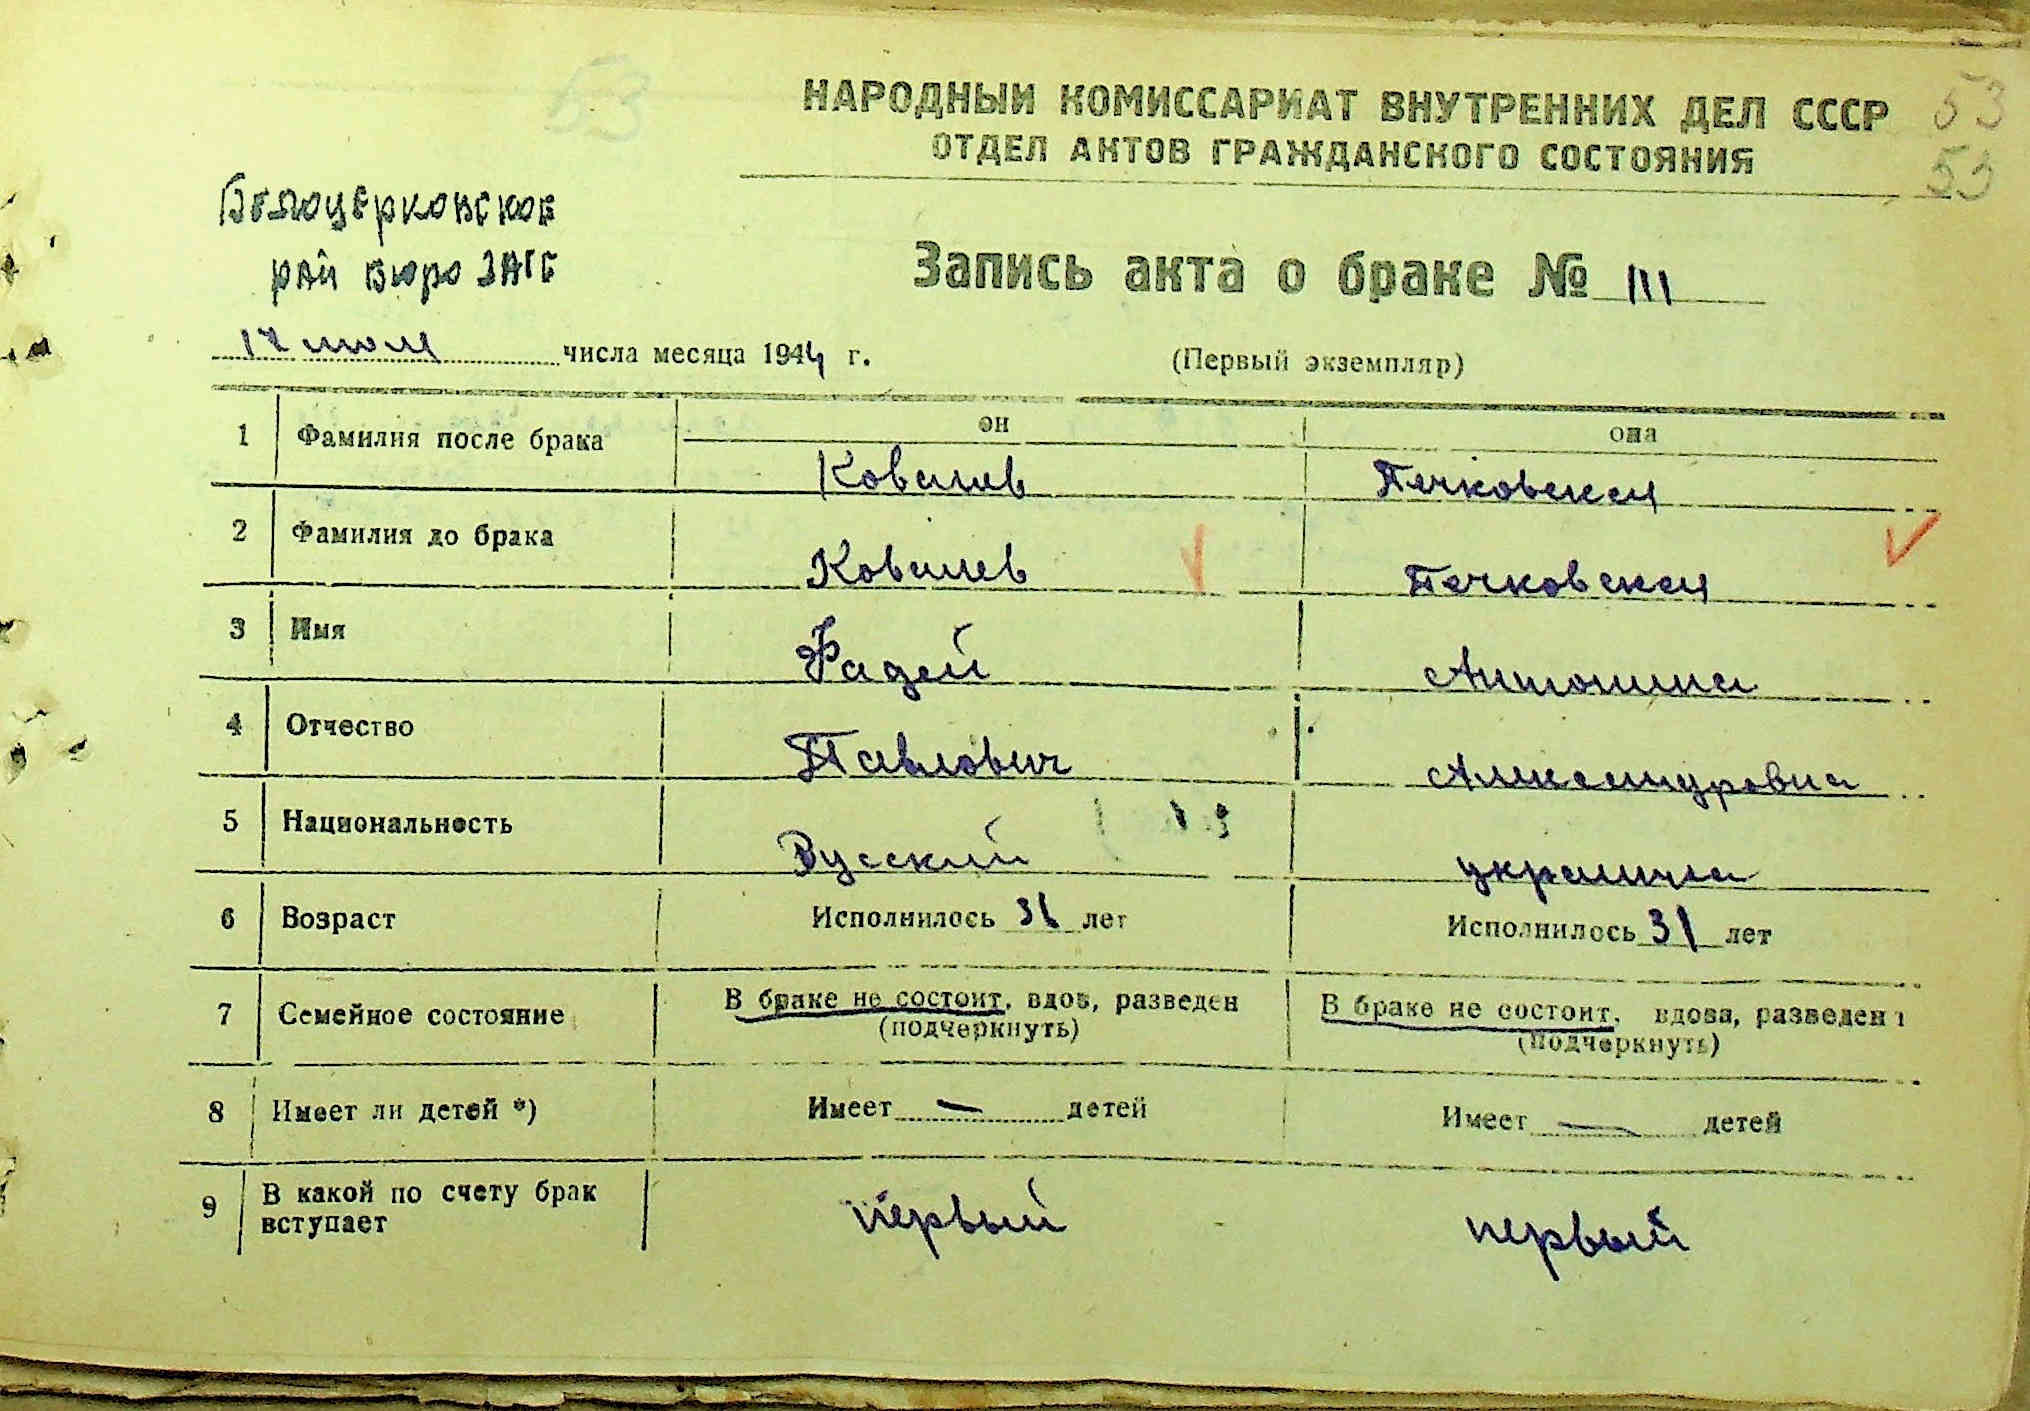 53
НАРОДНЫЙ КОМИССАРИАТ ВНУТРЕННИХ ДЕЛ СССР 53
ОТДЕЛ АКТОВ ГРАЖДАНСКОГО СОСТОЯНИЯ 53
Белоцерковское
рай бюро ЗАГС
Запись акта о браке № 111
17 июля числа месяца 1944 г.
(Первый экземпляр)
он она
1 Фамилия после брака Ковалев Печковская
2 Фамилия до брака Ковалев Печковская
3 Имя Фадей Антонина
4 Отчество Павлович Александровна
5 Национальность Русский украинка
6 Возраст Исполнилось 31 лет Исполнилось 31 лет
7 Семейное состояние В браке не состоит, вдов, разведен В браке не состоит, вдова, разведена
(подчеркнуть) (подчеркнуть)
8 Имеет ли детей *) Имеет — детей Имеет — детей
9 В какой по счету брак вступает первый первый